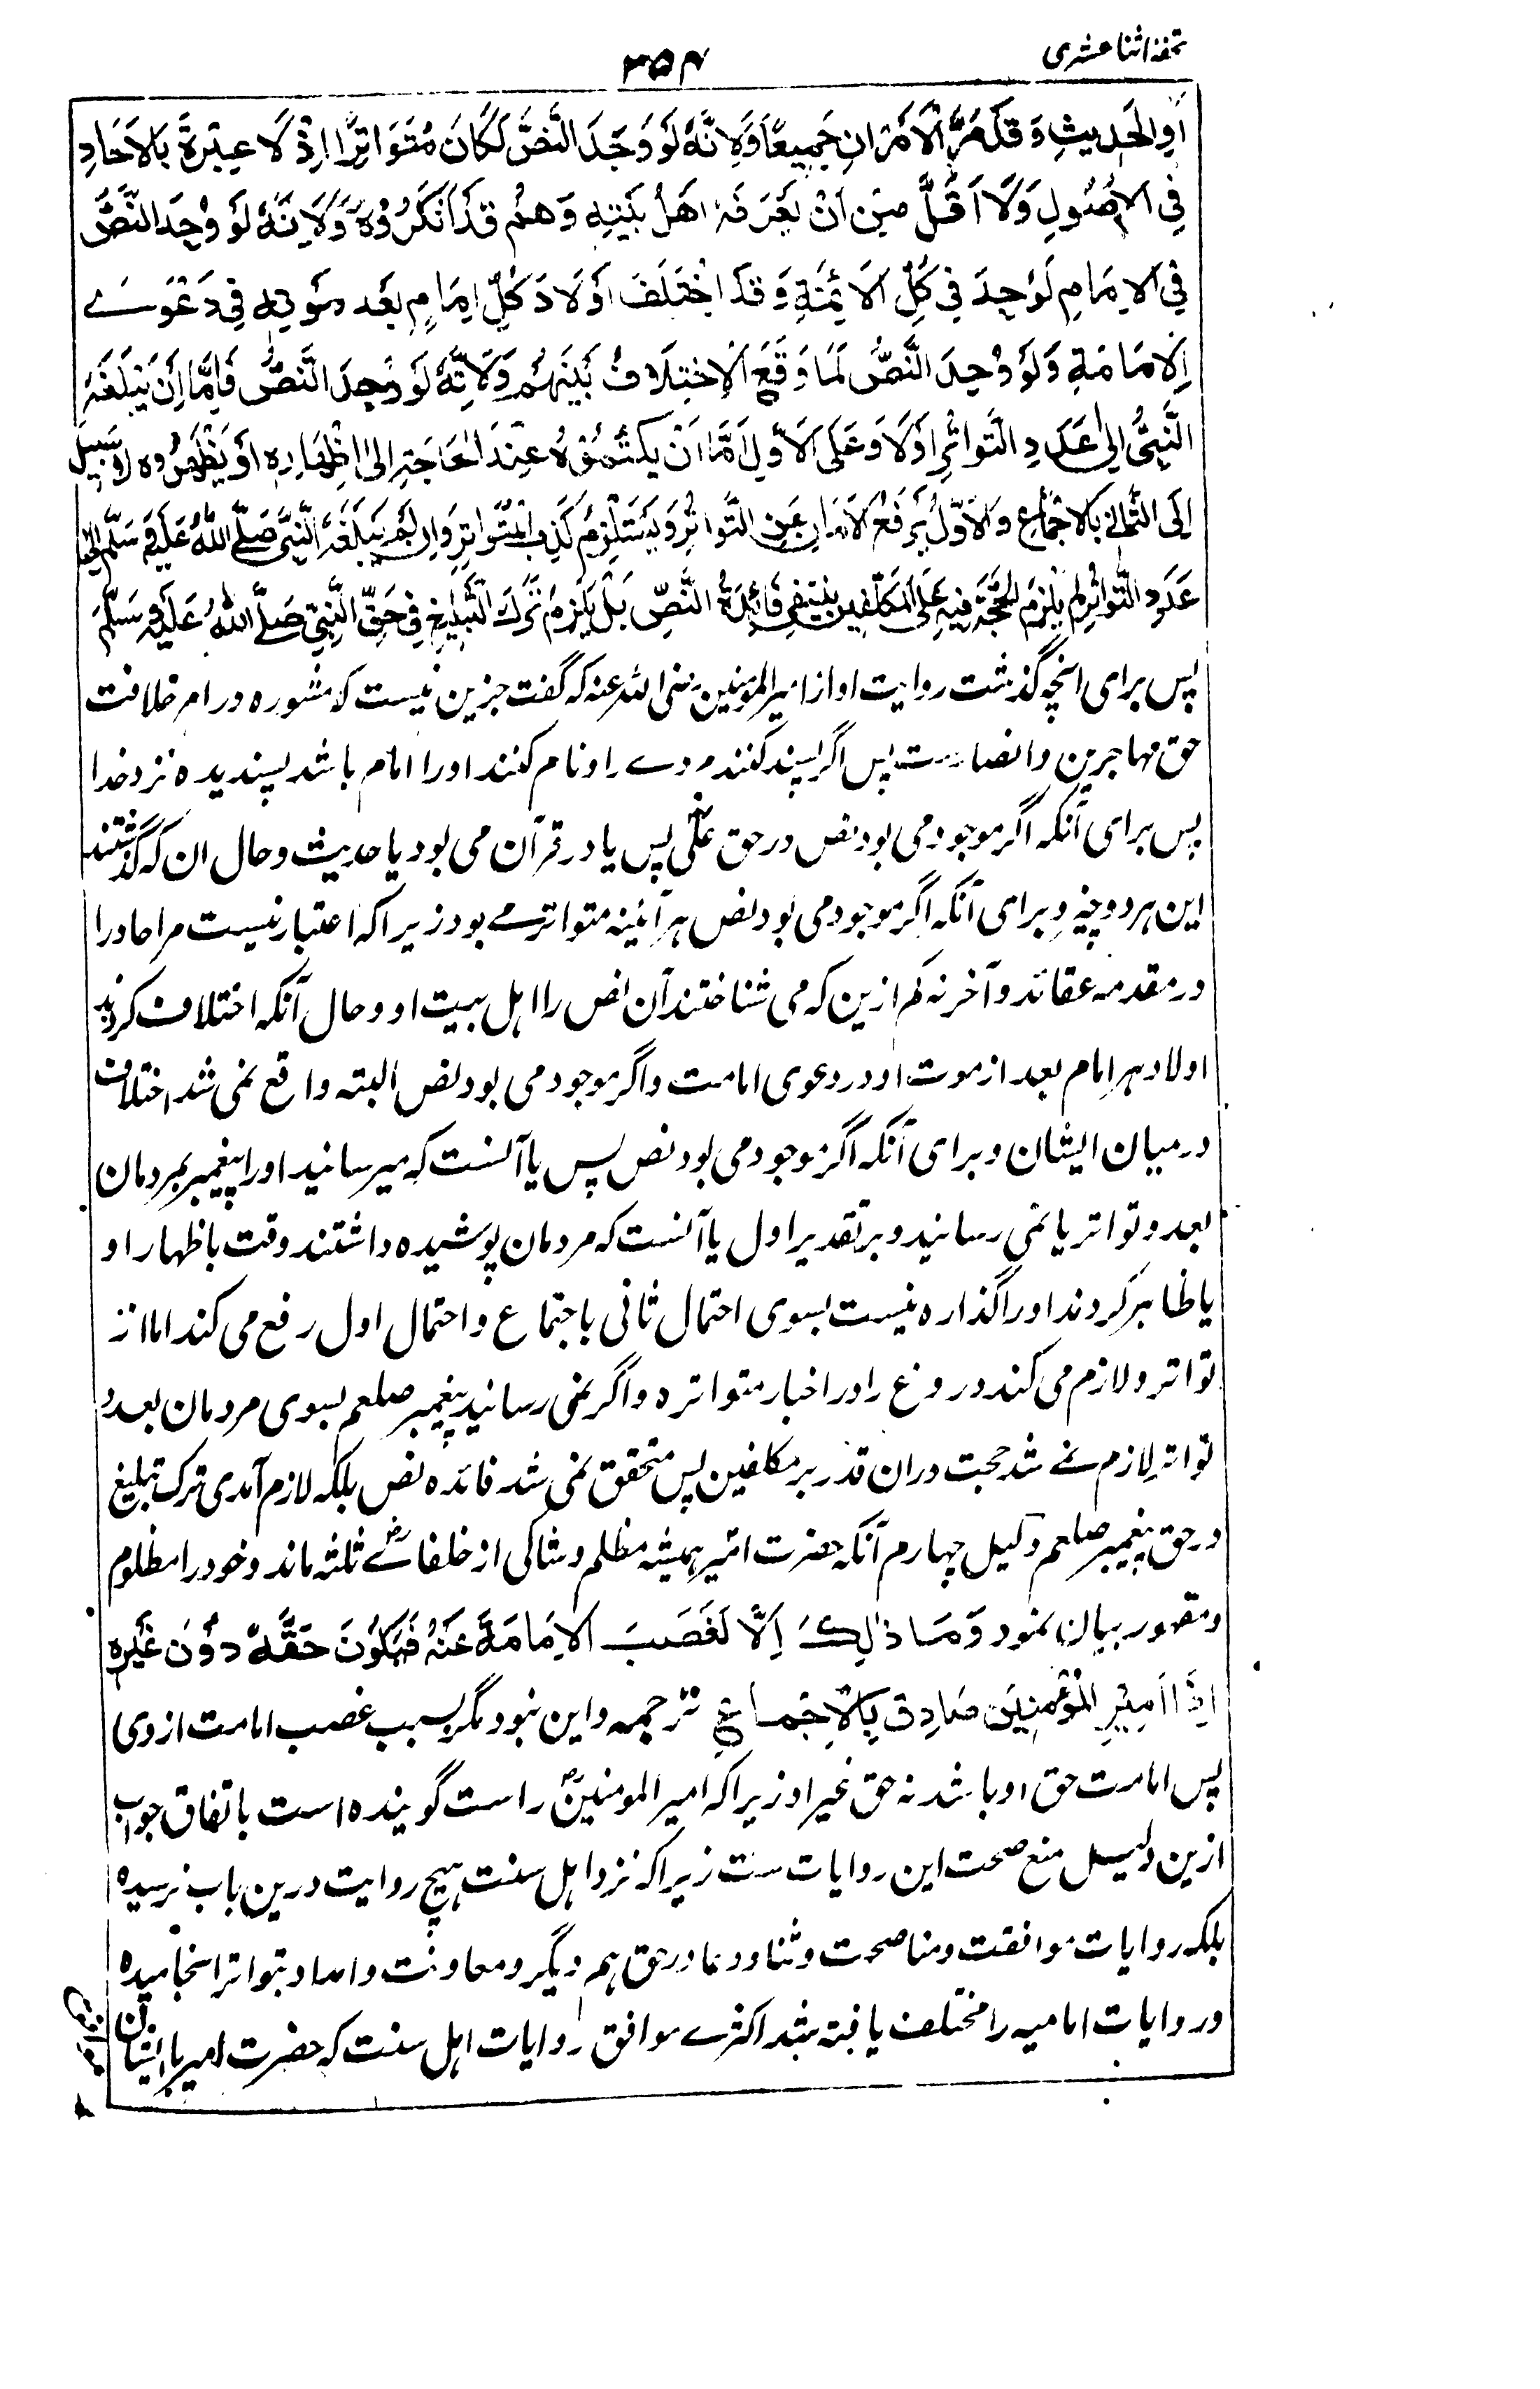 تحفہ اثنا عشری
۳۵۴
اَوِ الْحَدِیثِ وَقَدْ مَرَّ الْاَمْرَانِ جَمِیعًا وَلِاَنَّهُ لَوْ وَجَدَ النَّصَّ لَکَانَ مُتَوَاتِرًا اِذْ لَا عِبْرَةَ بَالْاٰحَادِ
فِی الْاُصُولِ وَلَا اَقَلَّ مِنْ اَنْ یَعْرِفَهُ اَهْلُ بَیْتِهِ وَهُمْ قَدْ اَنْکَرُوْهُ وَلِاَنَّهُ لَوْ وُجِدَ النَّصُّ
فِی الْاِمَامِ لَوُجِدَ فِی کُلِّ الْاَئِمَّةِ وَقَدِ اخْتَلَفَ اَوْلَادُ کُلِّ اِمَامٍ بَعْدَ مَوْتِهِ فِی دَعْوَے
اِلامَامَةِ وَلَوْ وُجِدَ النَّصُّ لَمَا وَقَعَ الْاِخْتِلَافُ بَیْنَهُمْ وَلِاَنَّهُ لَوْ وُجِدَ النَّصُّ فَاِمَّا اَنْ یَبْلُغَهُ
النَّبِیُّ اِلٰی عَدَدِ التَّوَاتُرِ اَوْلَا وَعَلَی الْاَوَّلِ اِمَّا اَنْ یَکْتُمُوْهُ عِنْدَ الْحَاجَةِ اِلٰی اِظْهَارِهِ اَوْ یُظْهِرُوهُ لاسَبِیلَ
اِلَی الثَّانِی بَالْاِجْمَاعِ وَالْاَوَّلُ یَرْفَعُ الْاَمَانَ عَنِ التَّوَاتُرِ وَیَسْتَلْزِمُ کَذِبَ الْمُتَوَاتِرِ وَاِنْ لَمْ یَبْلُغْهُ النَّبِیُّ صَلَّی اللّٰهُ عَلَیْهِ وَسَلَّمَ اِلٰی
عَدَدِ التَّوَاتُرِ لَمْ یَلْزَمِ الْحُجَّةُ فِیهِ عَلَی الْمُکَلَّفِینَ یَنْتَفِی فَائِدَةُ النَّصِّ بَلْ یَلْزَمُ تَرْكُ التَّبْلِیْغِ فِی حَقِّ النَّبِیِّ صَلَّی اللّٰهُ عَلَیْهِ وَسَلَّمَ
پس برای انچہ گذشت روایت او از امیر المومنین رضی اللہ عنہ کہ گفت جزین نیست کہ مشورہ در امر خلافت
حق مہاجرین وانصارست پس اگر پسند کنند مردے را ونام کنند اورا امام باشد پسندیدہ نزد خدا
پس برای آنکہ اگر موجود می بود نص در حق علیؓ پس یا در قرآن می بود یا حدیث وحال ان کہ گذشتند
این ہر دو چیز وبرای آنکہ اگر موجود می بود نص ہر آئینہ متواتر مے بود زیرا کہ اعتبار نیست مر احاد را
در مقدمہ عقائد وآخر نہ کم ازین کہ می شناختند آن نص را اہل بیت او وحال آنکہ اختلاف کردند
اولاد ہر امام بعد از موت او در دعوی امامت واگر موجود می بود نص البتہ واقع نمی شد اختلاف
درمیان ایشان وبرای آنکہ اگر موجود می بود نص پس یا آنست کہ میرسانید اورا پیغمبر بمردمان
بعدد تواتر یا نمی رسانید وبر تقدیر اول یا آنست کہ مردمان پوشیدہ داشتند وقت باظہار او
یا ظاہر کردند اورا گذارہ نیست بسوی احتمال ثانی باجتماع واحتمال اول رفع می کند اماا ز
تواتر ولازم می کند دروغ را در اخبار متواترہ واگر نمی رسانید پیغمبر صلعم بسوی مردمان بعدد
تواتر لازم نمے شد حجت دران قدر بر مکلفین پس متحقق نمی شد فائدہ نص بلکہ لازم آمدی ترک تبلیغ
در حق پیغمبر صلعم دلیل چہارم آنکہ حضرت امیر ہمیشہ متظلم وشاکی از خلفائے ثلثہ ماند وخود را مظلوم
ومقہور بیان نمود وَمَا ذٰلِكَ اِلَّا لَغَصَبَ الْاِمَامَةَ عَنْهُ فَیَکُوْنَ حَقَّهُ دُوْنَ غَیْرِهِ
اِذَا اَمِیْرُ الْمُؤْمِنِیْنَ صَادِقٌ بِالْاِجْمَاعِ ترجمہ واین نبود مگر بسبب غصب امامت از وی
پس امامت حق او باشد نہ حق غیر او زیرا کہ امیر المومنینؓ راست گویندہ است باتفاق جواب
ازین دلیل منع صحت این روایات ست زیرا کہ نزد اہل سنت ہیچ روایت درین باب نرسیدہ
بلکہ روایات موافقت ومناصحت وثنا ودعا در حق ہم دیگر ومعاونت وامداد بتواتر انجامیدہ
وروایات امامیہ را مختلف یافتہ شد اکثرے موافق روایات اہل سنت کہ حضرت امیر با ایشان